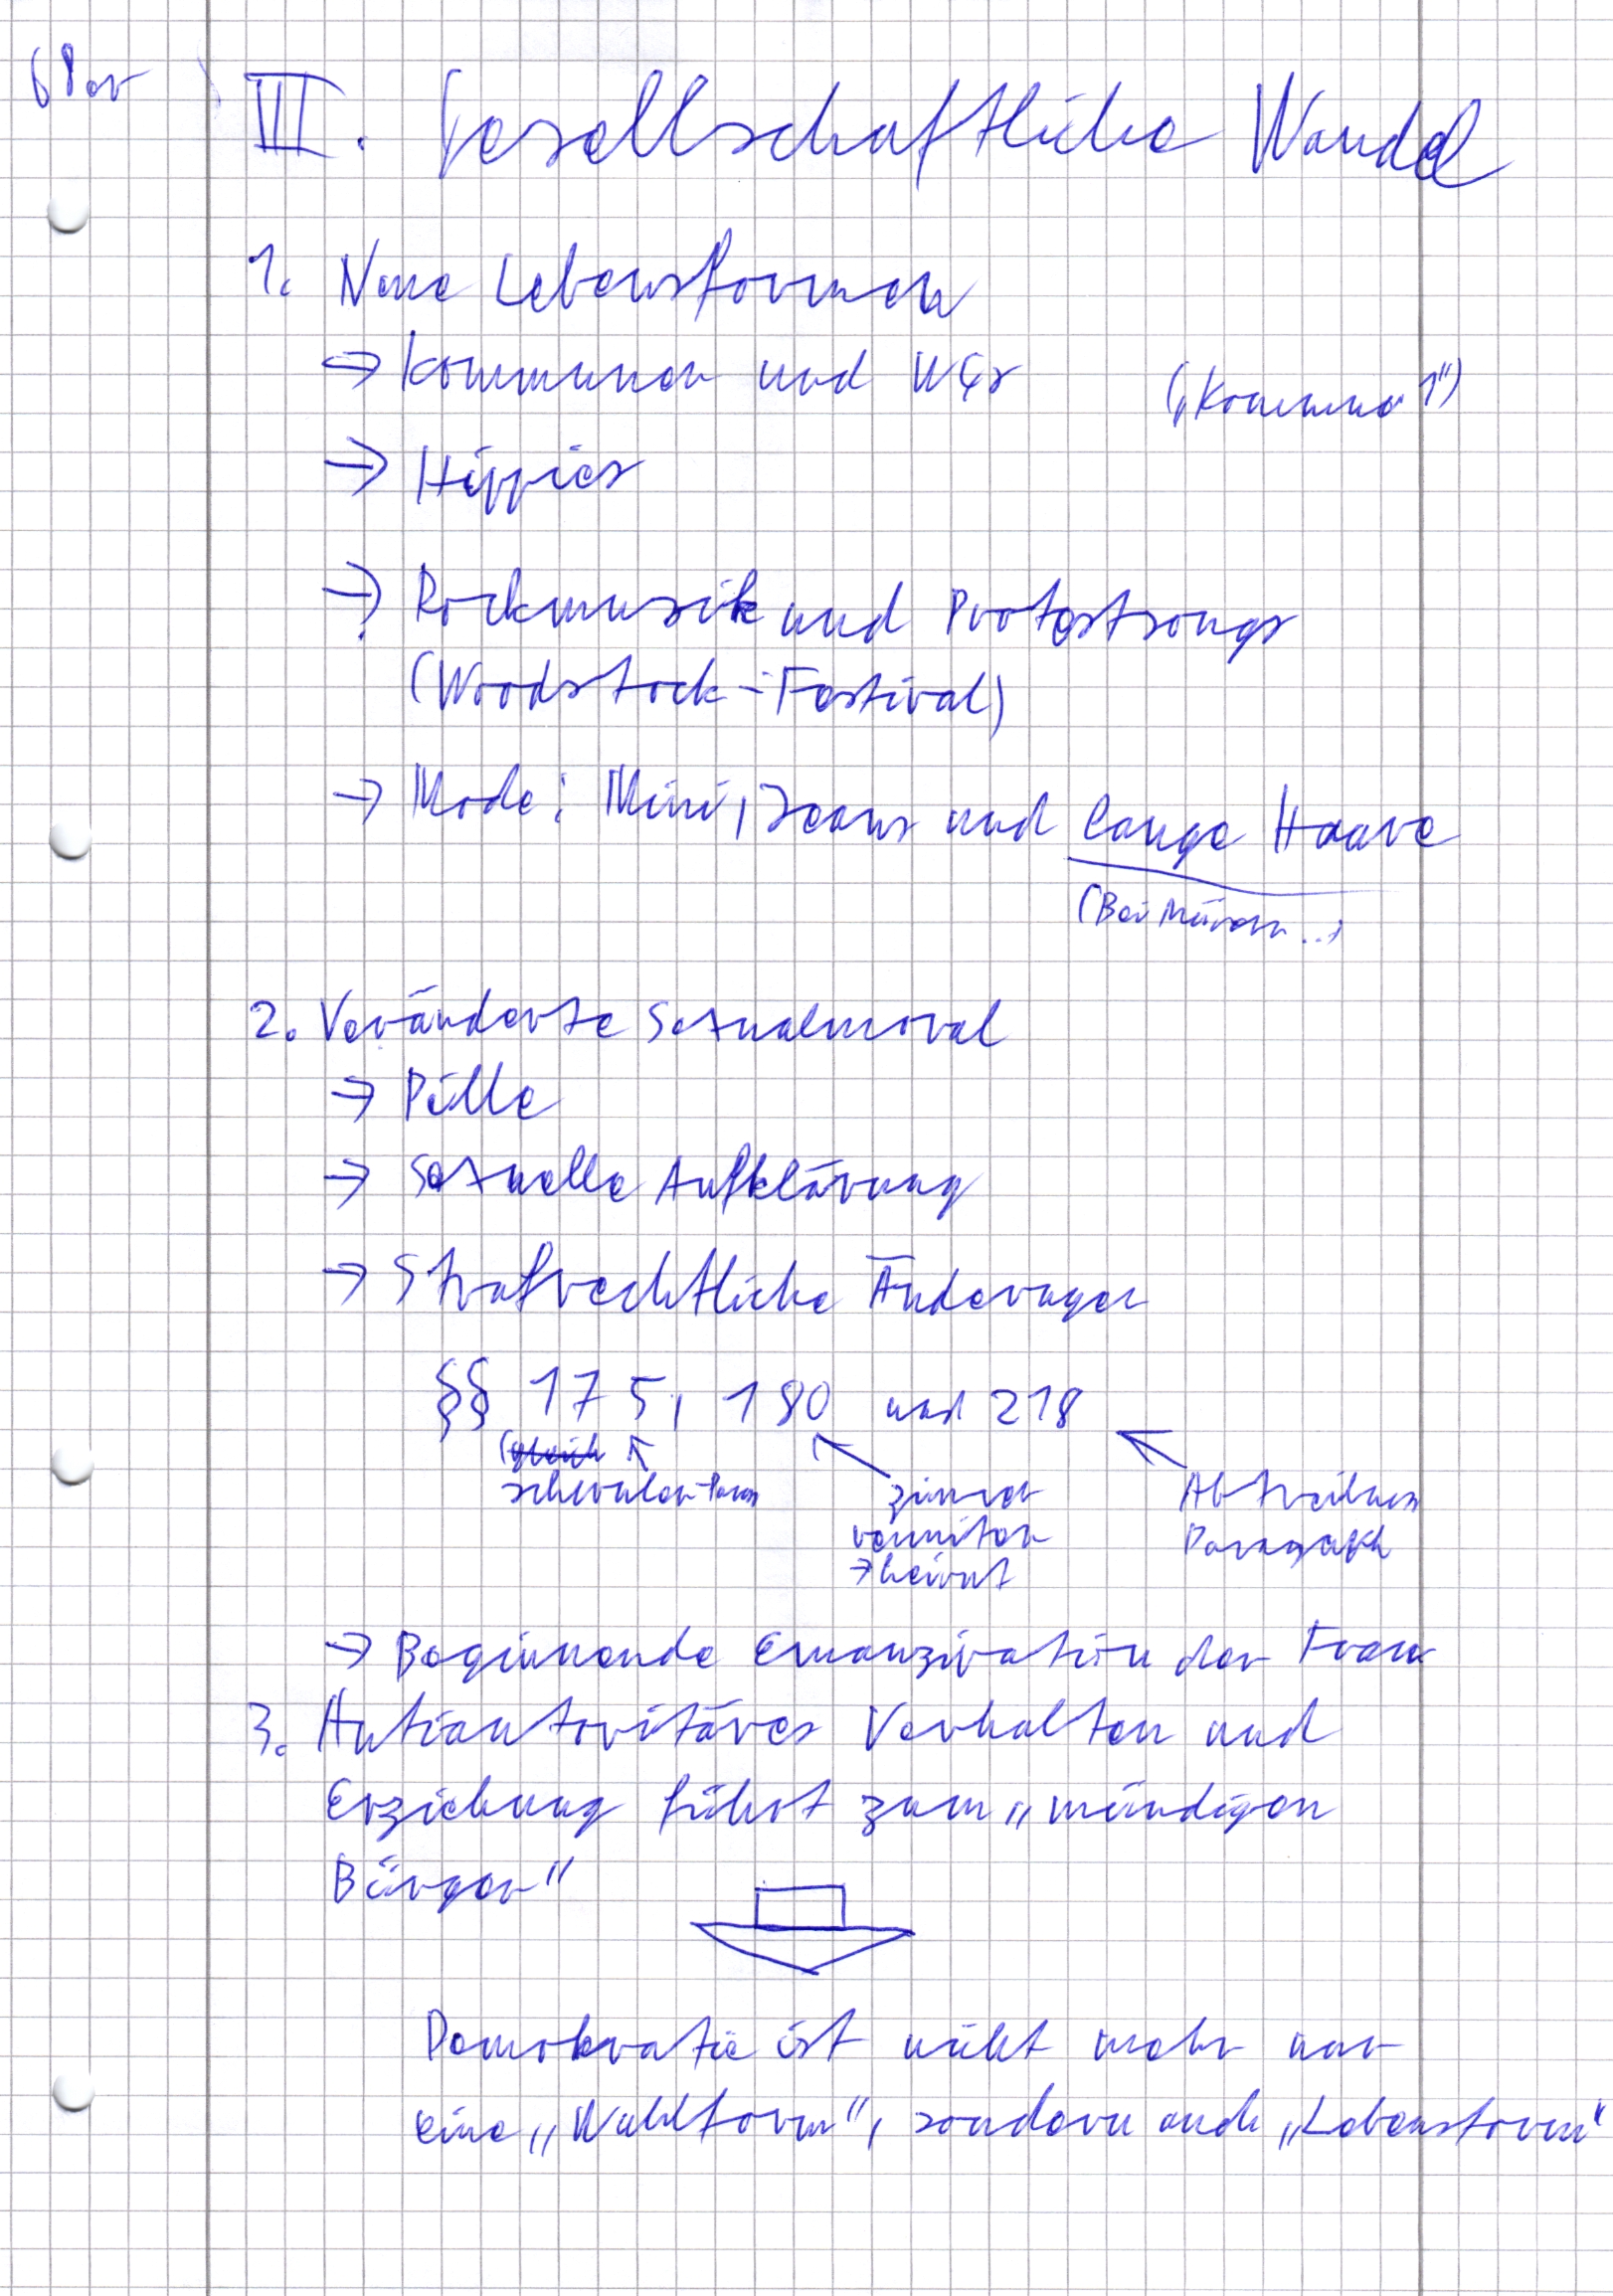 68er
III. Gesellschaftliche Wandel
1. Neue Lebensformen
→ Kommunen und WGs („Kommune 1")
→ Hippies
→ Rockmusik und Protestsongs
(Woodstock-Festival)
→ Mode: Mini, Jeans und lange Haare
(Bei Männern..)
2. Veränderte Sexualmoral
→ Pille
→ Sexuelle Aufklärung
→ Strafrechtliche Änderungen
§§ 175, 180 und 218
(gleich
schwulen-Para
zimmer
vermieten
→ heirat
Abtreibungs
Paragraph
→ Beginnende Emanzipation der Frau
3. Antiautoritäres Verhalten und
Erziehung führt zum „mündigen
Bürger"
Demokratie ist nicht mehr nur
eine „Wahlform", sondern auch „Lebensform"